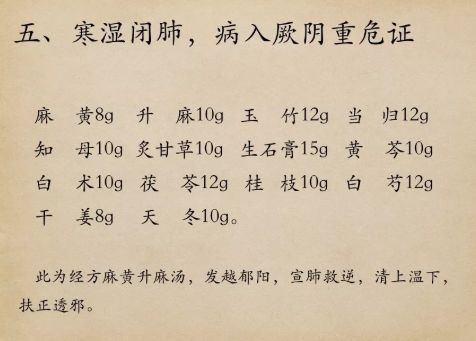 五、寒湿闭肺，病入厥阴重危证
麻　黄8g　升　麻10g　玉　竹12g　当　归12g
知　母10g　炙甘草10g　生石膏15g　黄　芩10g
白　术10g　茯　苓12g　桂　枝10g　白　芍12g
干　姜8g　天　冬10g。
此为经方麻黄升麻汤，发越郁阳，宣肺救逆，清上温下，
扶正透邪。